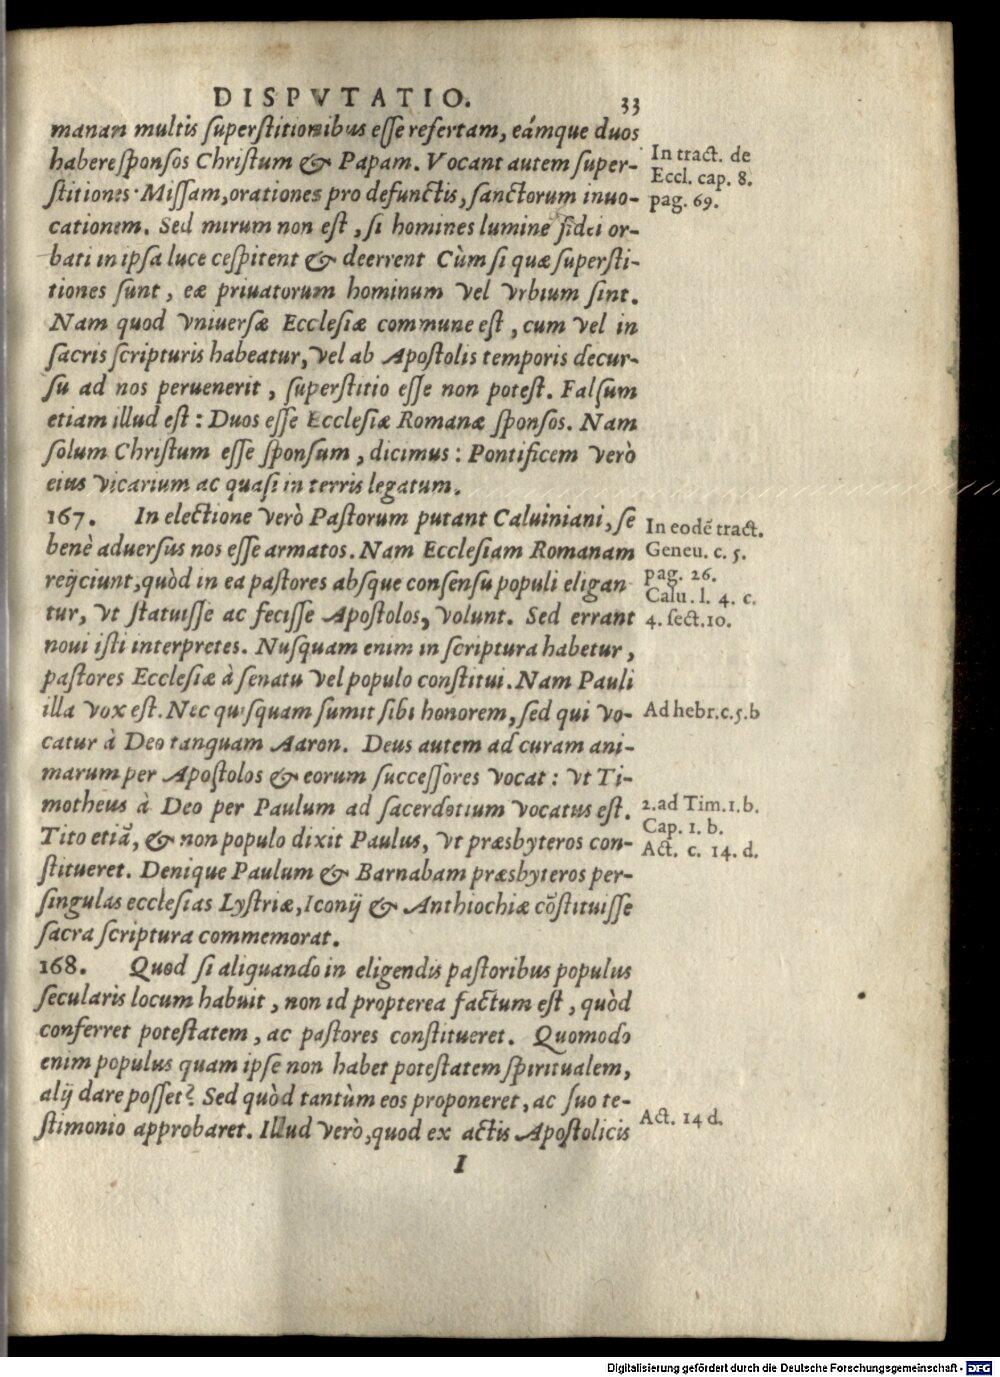 DISPVTATIO. 33
manan multis superstitionibus esse refertam, eámque duos
habere sponsos Christum & Papam. Vocant autem super-
stitiones Missam, orationes pro defunctis, sanctorum inuo-
cationem. Sed mirum non est, si homines lumine fidei or-
bati in ipsa luce cespitent & deerrent Cùm si quæ supersti-
tiones sunt, eæ priuatorum hominum vel vrbium sint.
Nam quod vniuersæ Ecclesiæ commune est, cum vel in
sacris scripturis habeatur, vel ab Apostolis temporis decur-
su ad nos peruenerit, superstitio esse non potest. Falsum
etiam illud est: Duos esse Ecclesiæ Romanæ sponsos. Nam
solum Christum esse sponsum, dicimus: Pontificem verò
eius vicarium ac quasi in terris legatum.
In tract. de
Eccl. cap. 8.
pag. 69.
167. In electione verò Pastorum putant Caluiniani, se
benè aduersus nos esse armatos. Nam Ecclesiam Romanam
reijciunt, quòd in ea pastores absque consensu populi eligan
tur, vt statuisse ac fecisse Apostolos, volunt. Sed errant
noui isti interpretes. Nusquam enim in scriptura habetur,
pastores Ecclesiæ à senatu vel populo constitui. Nam Pauli
illa vox est. Nec quisquam sumit sibi honorem, sed qui vo-
catur à Deo tanquam Aaron. Deus autem ad curam ani-
marum per Apostolos & eorum successores vocat: vt Ti-
motheus à Deo per Paulum ad sacerdotium vocatus est.
Tito etiã, & non populo dixit Paulus, vt præsbyteros con-
stitueret. Denique Paulum & Barnabam præsbyteros per-
singulas ecclesias Lystriæ, Iconij & Anthiochiæ cõstituisse
sacra scriptura commemorat.
In eodẽ tract.
Geneu. c. 5.
pag. 26.
Calu. l. 4. c.
4. sect. 10.
Ad hebr. c. 5. b
2. ad Tim. 1. b.
Cap. 1. b.
Act. c. 14. d.
168. Quod si aliquando in eligendis pastoribus populus
secularis locum habuit, non id propterea factum est, quòd
conferret potestatem, ac pastores constitueret. Quomodo
enim populus quam ipse non habet potestatem spiritualem,
alij dare posset? Sed quòd tantùm eos proponeret, ac suo te-
stimonio approbaret. Illud verò, quod ex actis Apostolicis
Act. 14 d.
I
Digitalisierung gefördert durch die Deutsche Forschungsgemeinschaft - DFG